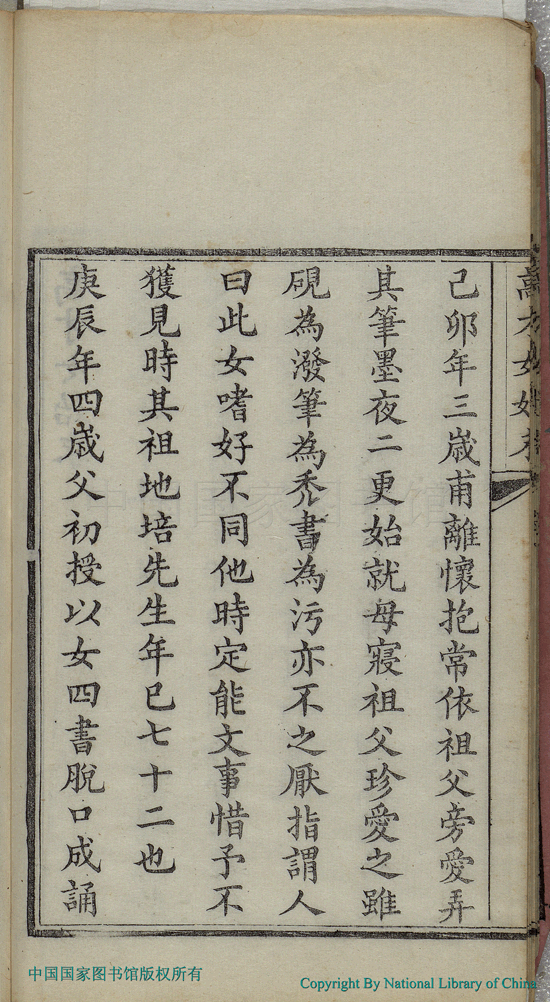 己卯年三歲甫離懷抱常依祖父旁愛弄
其筆墨夜二更始就母寢祖父珍愛之雖
硯為潑筆為禿書為污亦不之厭指謂人
曰此女嗜好不同他時定能文事惜予不
獲見時其祖地培先生年已七十二也
庚辰年四歲父初授以女四書脫口成誦
中国国家图书馆版权所有
Copyright By National Library of China